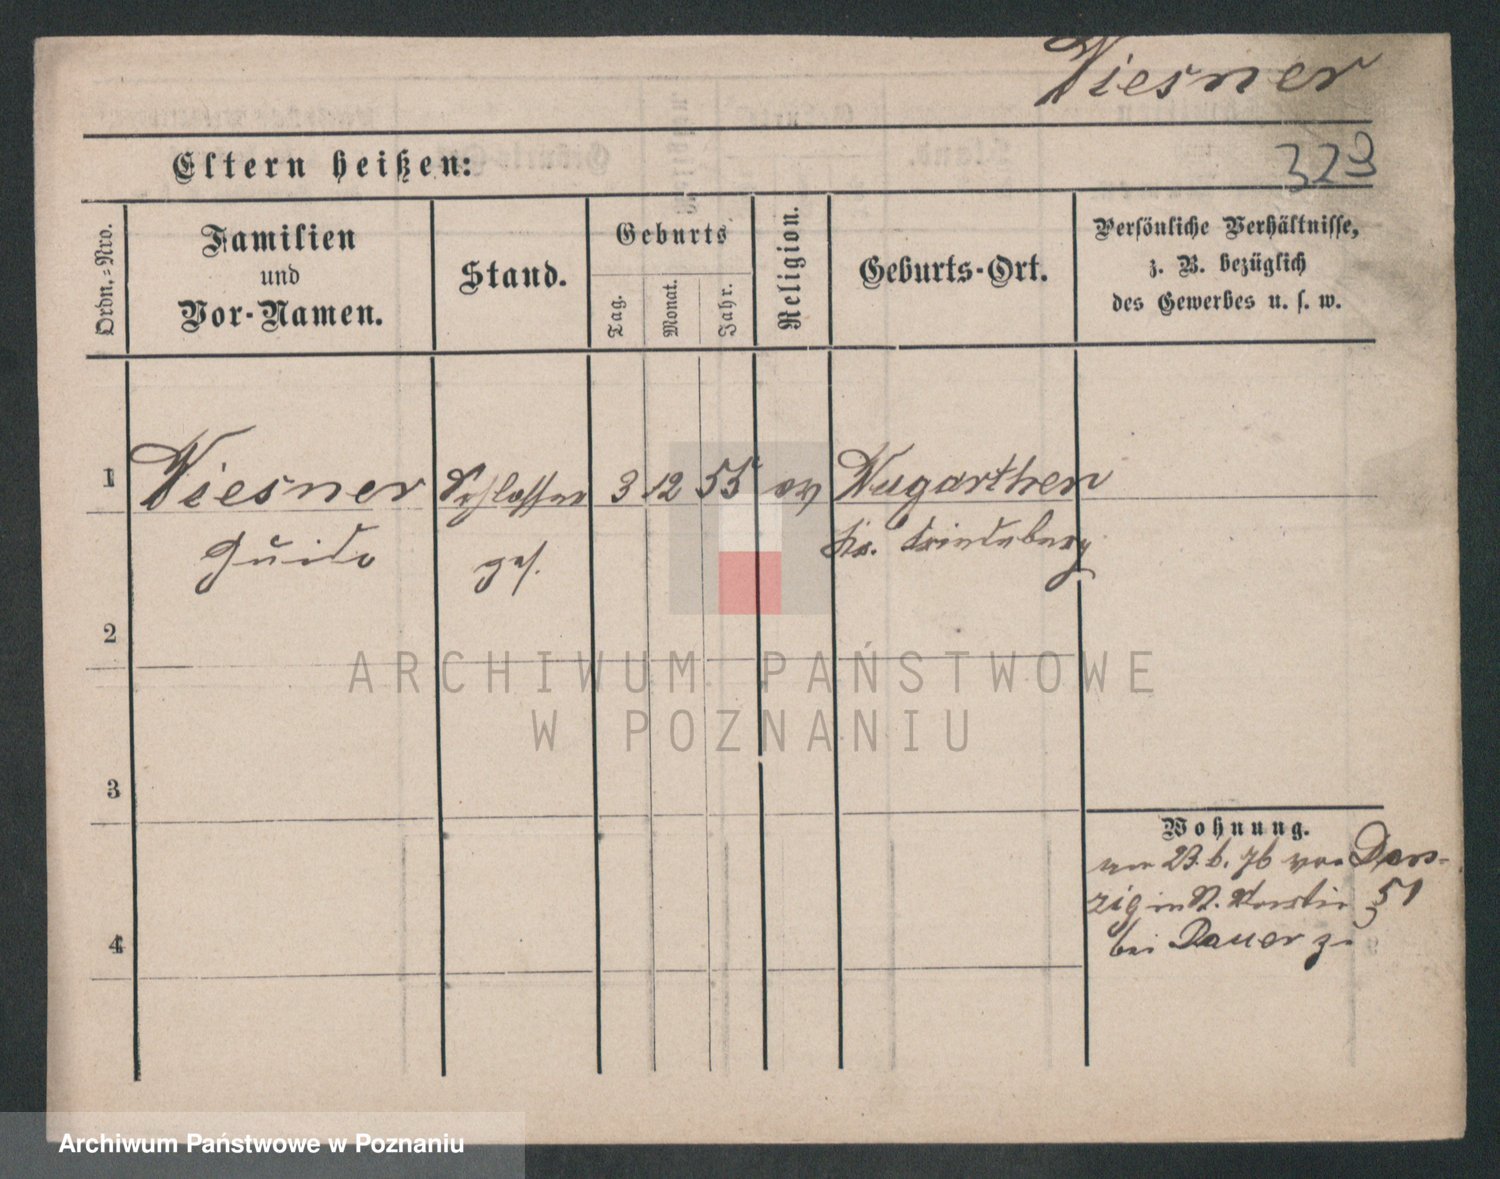 Wiesner
323
Eltern heißen:
Ordn.=Nro.
Familien
und
Vor-Namen.
Stand.
Geburts
Tag.
Monat.
Jahr.
Religion.
Geburts-Ort.
Persönliche Verhältnisse,
z. B. bezüglich
des Gewerbes u. s. w.
1 Wiesner Schlosser 3 12 55 ev Wugarthen
Guido ges. Kr. Friedeberg
2
3
4
Wohnung.
am 23.6.76 von Dan-
zig in 51
bei Bauer zu
ARCHIWUM PAŃSTWOWE
W POZNANIU
Archiwum Państwowe w Poznaniu